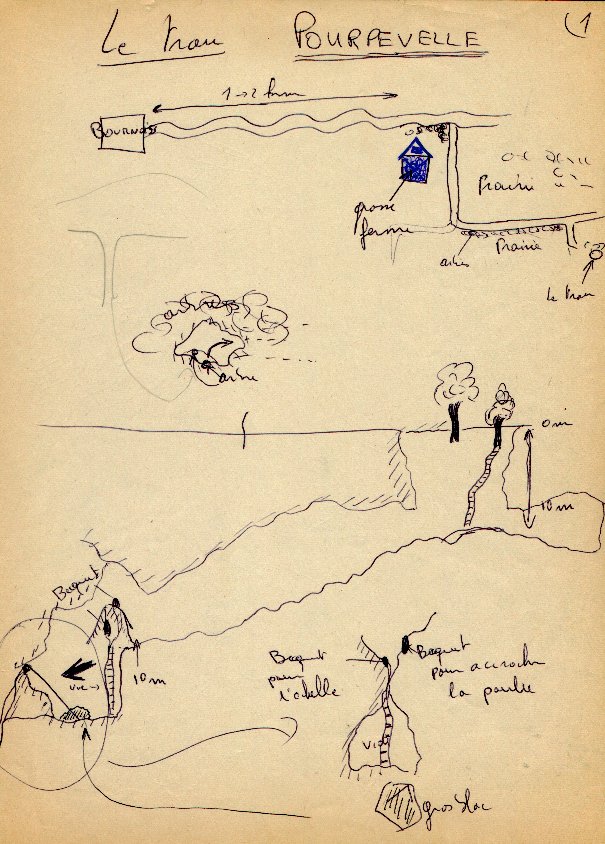 (1
Le trou POURPEVELLE
1→2 km
BOURNOIS
grosse
ferme
Prairie
Prairie
le trou
arbres
arbre
0 m
10 m
Baquet
vue→
10 m
Baquet
pour
l'échelle
Baquet
pour accrocher
la poulie
gros bloc